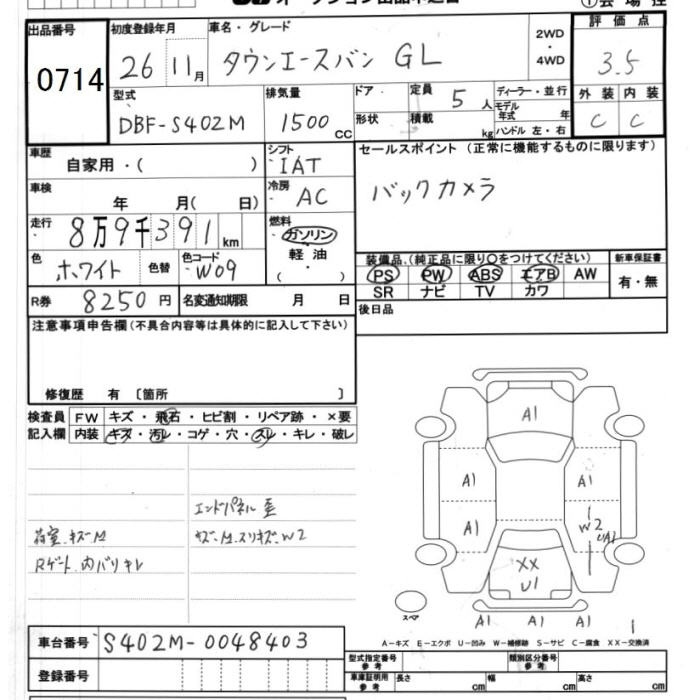 出品番号
0714
初度登録年月
26 11月
車名・グレード
タウンエースバン GL
2WD
・
4WD
評価点
3.5
外装 内装
C C
型式
DBF-S402M
排気量
1500 CC
ドア・
形状
定員 5 人
積載 kg
ディーラー・並行
モデル年式 年
ハンドル 左・右
車歴
自家用・( )
シフト
IAT
セールスポイント (正常に機能するものに限ります)
バックカメラ
車検
年 月( 日)
冷房
AC
走行
8万9千391 km
燃料
ガソリン
軽油
( ・ )
色
ホワイト
色替
色コード
W09
装備品.(純正品に限り○をつけてください)
PS PW ABS エアB AW
SR ナビ TV カワ
新車保証書
有・無
R券 8250円
名変通知期限 月 日
後日品
注意事項申告欄(不具合内容等は具体的に記入して下さい)
修復歴 有 〔箇所 〕
検査員
記入欄
FW キズ・飛石・ヒビ割・リペア跡・×要
内装 キズ・汚レ・コゲ・穴・スレ・キレ・破レ
エンドパネル 歪
荷室.キズM
キズ.M.スリキズ.W2
Rゲート.内バリキレ
A1
A1 A1
A1 W2
UA1
XX
U1
スペア
A1 A1 A1
A-キズ E-エクボ U-凹み W-補修跡 S-サビ C-腐食 XX-交換済
車台番号 S402M-0048403
登録番号
型式指定番号
参考
類別区分番号
参考
車庫証明用
参考
長さ cm 幅 cm 高さ cm